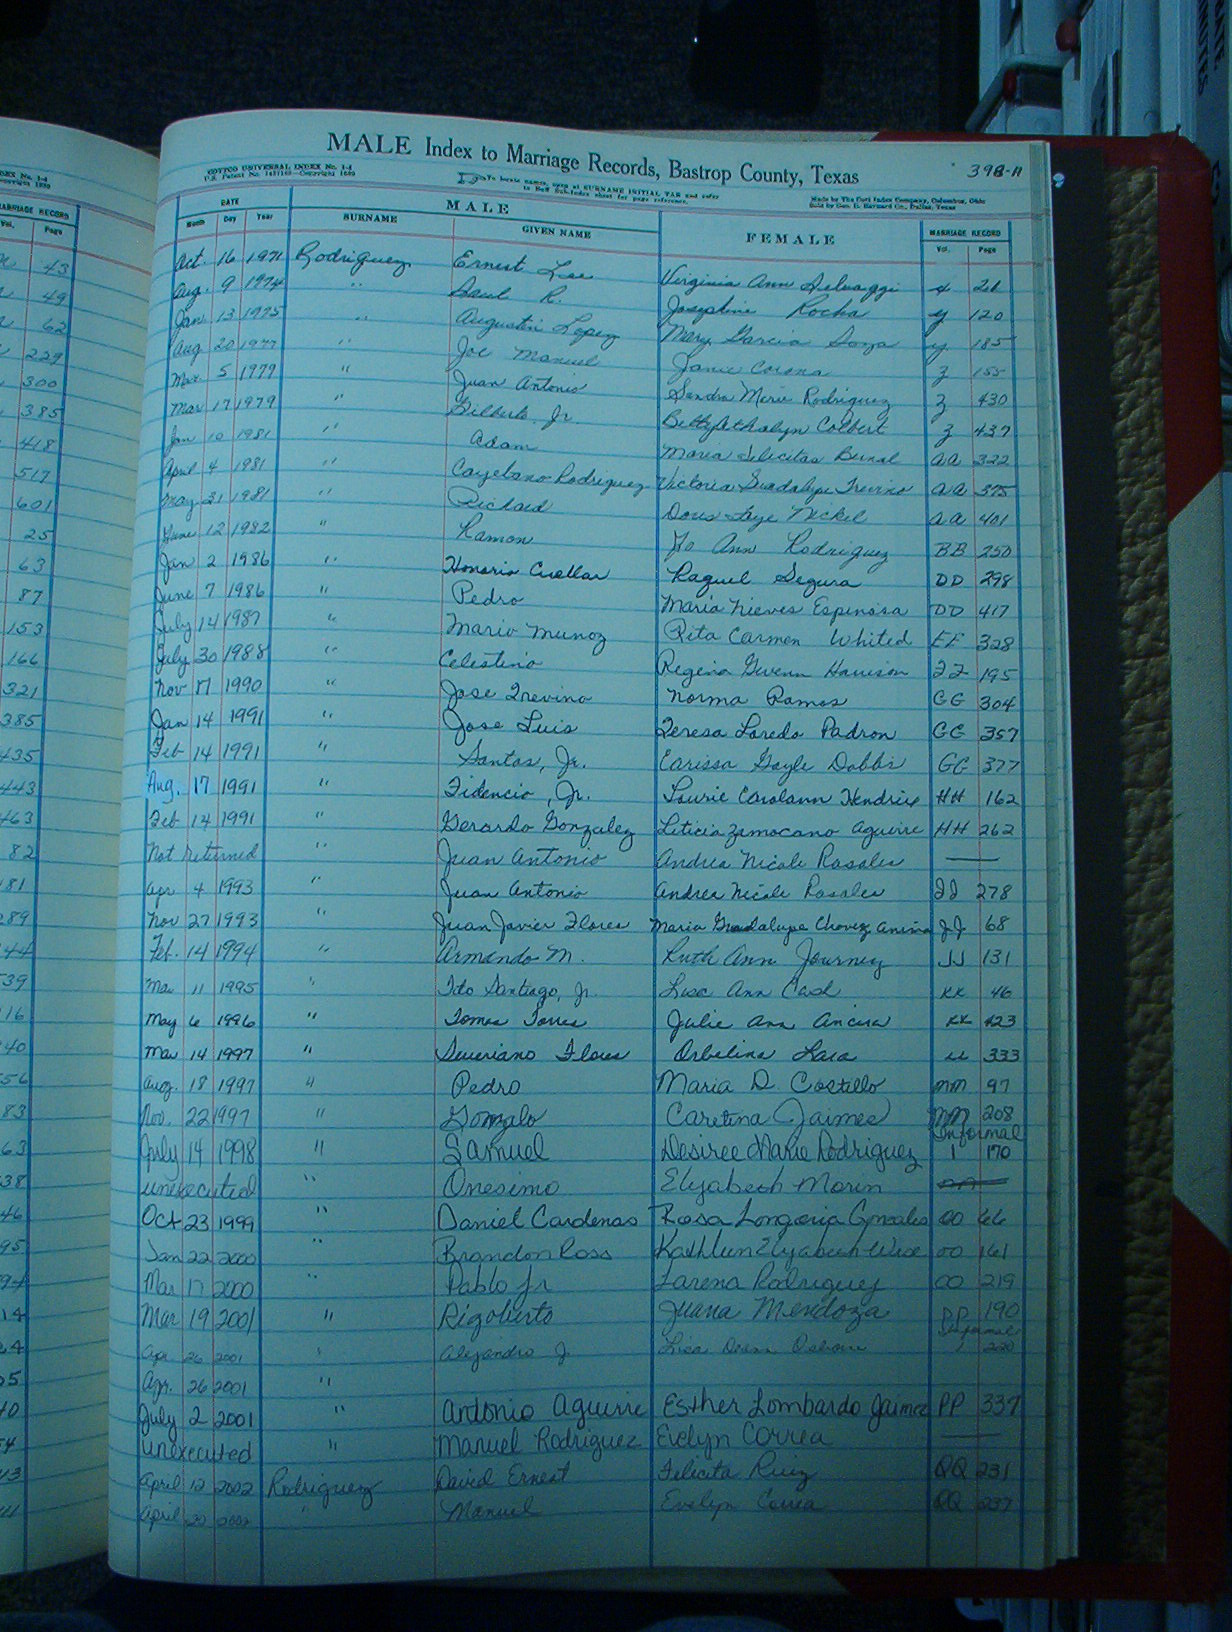 MALE Index to Marriage Records, Bastrop County, Texas 398-A
COTTCO UNIVERSAL INDEX No. 1-4
MALE
DATE
Month Day Year SURNAME GIVEN NAME FEMALE MARRIAGE RECORD Vol. Page
Oct. 16 1971 Rodriguez Ernest Lee Virginia Ann
Aug. 9 1974 " R. Josephine Rocha y 120
Jan 13 1975 " Augustin Lopez Mary Garcia y 185
Aug 20 1977 " Joe Manuel Janie Corona z 155
Mar. 5 1979 " Juan Antonio Sandra Marie Rodriguez z 430
Mar 17 1979 " Gilbert Jr. Colbert z 437
Jan 10 1981 " Adam Maria Felicitas Bernal AA 322
April 4 1981 " Cayetano Rodriguez Victoria Guadalupe Trevino AA 375
May 21 1981 " Richard Doris Faye Nickel AA 401
June 12 1982 " Ramon Jo Ann Rodriguez BB 250
Jan 2 1986 " Honorio Cuellar Raquel Segura DD 298
June 7 1986 " Pedro Maria Nieves Espinosa DD 417
July 14 1987 " Mario Munoz Rita Carmen Whited EE 328
July 30 1988 " Celestino Regina Gwenn Harrison FF 195
Nov 17 1990 " Jose Trevino Norma Ramos GG 304
Jan 14 1991 " Jose Luis Teresa Laredo Padron GG 357
Feb 14 1991 " Santos, Jr. Carissa Gayle Dobbs GG 377
Aug. 17 1991 " Fidencio, Jr. Laurie Carolann Hendrix HH 162
Feb 14 1991 " Gerardo Gonzalez Leticia Zamocano Aguirre HH 262
Not returned " Juan Antonio Andrea Nicole Rosales —
Apr 4 1993 " Juan Antonio Andrea Nicole Rosales II 278
Nov 27 1993 " Juan Javier Flores Maria Guadalupe Chavez JJ 68
Feb. 14 1994 " Armando M. Ruth Ann Journey JJ 131
Mar 11 1995 " Tito Santiago, Jr. Lisa Ann Cash KK 46
May 6 1996 " Tomas Torres Julie Ann Ancira KK 423
Mar 14 1997 " Severiano Flores Orbelina Lara LL 333
Aug. 18 1997 " Pedro Maria D. Castillo MM 97
Nov. 22 1997 " Gonzalo Caretina Jaimes MM 208
July 14 1998 " Samuel Desiree Marie Rodriguez Informal 1 170
unexecuted " Onesimo Elizabeth Morin
Oct 23 1999 " Daniel Cardenas Rosa Longoria Gonzales OO 66
Jan 22 2000 " Brandon Ross Kathleen Elizabeth Wise OO 161
Mar 17 2000 " Pablo Jr Larena Rodriguez OO 219
Mar 19 2001 " Rigoberto Juana Mendoza PP 190
Apr 26 2001 " Alejandro J. Lisa Osborn Informal 1 220
Apr. 26 2001 "
July 2 2001 " Antonio Aguirre Esther Lombardo Jaimez PP 337
unexecuted " Manuel Rodriguez Evelyn Correa —
April 12 2002 Rodriguez David Ernest Felicita Ruiz QQ 231
April 20 2002 " Manuel Evelyn Correa QQ 237
MARRIAGE RECORD
Vol. Page
43
49
62
229
300
385
418
517
601
25
63
87
153
166
321
385
435
443
463
82